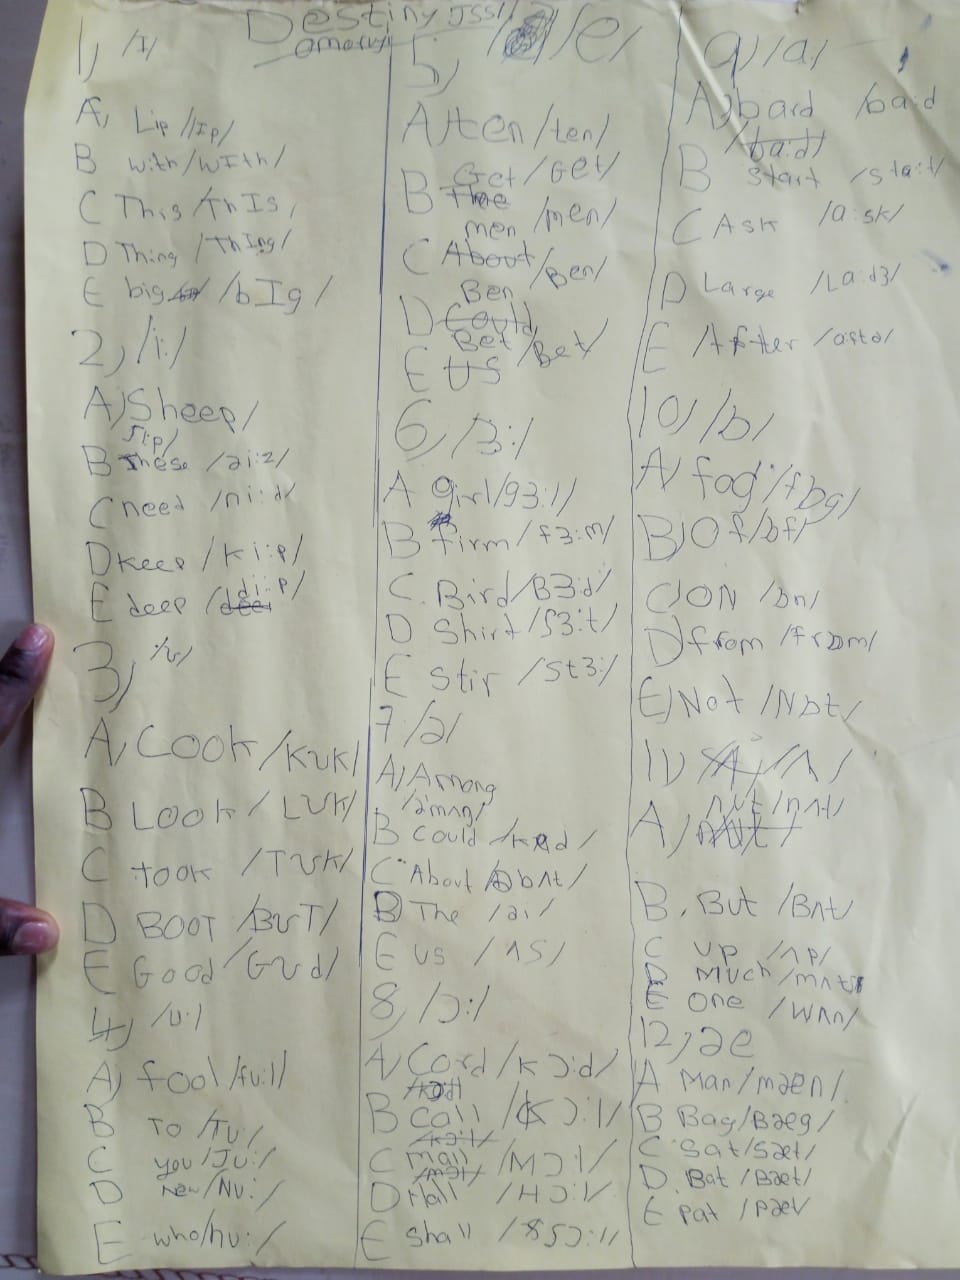 Destiny JSS1
1) /I/
A, Lip /lIp/
B with /wIth/
C This /ThIs/
D Thing /ThIng/
E big /bIg/
2) /i:/
A) Sheep /
ʃip/
B These /ði:z/
C need /ni:d/
D keep /ki:p/
E deep /di:p/
3) /ʊ/
A, Cook /Kʊk/
B Look /Lʊk/
C took /Tʊk/
D BOOT /BʊT/
E Good /Gʊd/
4) /u:/
A) fool /fu:l/
B To /Tu:/
C you /Ju:/
D new /Nu:/
E who /hu:/
5) /e/
A) ten /ten/
B Get /Get/
men /men/
C About /Ben/
Ben
D Could
Bet /Bet/
E US
6) /ɜ:/
A girl /gɜ:l/
B firm /fɜ:m/
C. Bird /Bɜ:d/
D Shirt /ʃɜ:t/
E Stir /Stɜ:/
7 /ə/
A) Among
/əmʌŋ/
B Could
C About
D The
E us /ʌS/
8) /ɔ:/
A) Cord /kɔ:d/
B call /kɔ:l/
C mall /Mɔ:l/
D Hall /Hɔ:l/
E Shall
9) /a/
A) bard /ba:d
/ba:d/
B Start /Sta:t/
C ASK /a:sk/
D Large /La:dʒ/
E After /a:ftə/
10) /ɒ/
A) fog /fɒg/
B) Of /ɒf/
C) ON /ɒn/
D) from /frɒm/
E) Not /Nɒt/
11) /ʌ/
A) nut /nʌt/
B. But /Bʌt/
C up /ʌp/
D Much
E one /Wʌn/
12, æ
A Man /mæn/
B Bag /Bæg/
C Sat /Sæt/
D. Bat /Bæt/
E pat /pæt/